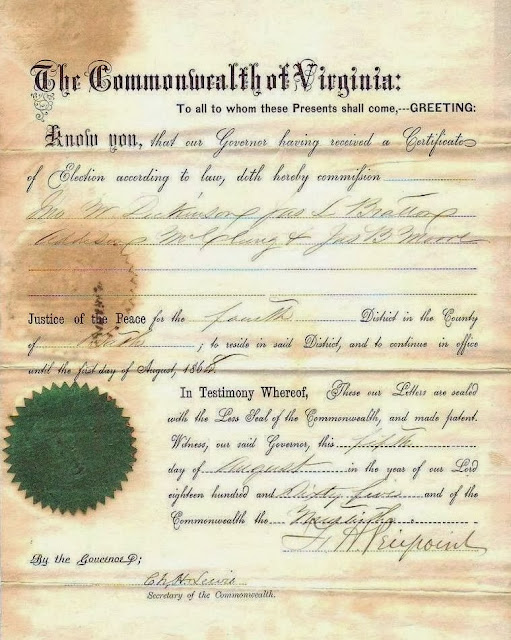 The Commonwealth of Virginia:
To all to whom these Presents shall come,---GREETING:
Know you, that our Governor having received a Certificate
of Election according to law, doth hereby commission
Jno W. Dickinson, Jas L Bratton
Addison McClung & Jas B. Moore
Justice of the Peace for the fourth District in the County
of Bath ; to reside in said District, and to continue in office
until the first day of August, 1868.
In Testimony Whereof, These our Letters are sealed
with the Less Seal of the Commonwealth, and made patent.
Witness, our said Governor, this fifth
day of August in the year of our Lord
eighteen hundred and Sixty and of the
Commonwealth the
F H Peirpoint
By the Governor;
Ch. H. Lewis
Secretary of the Commonwealth.